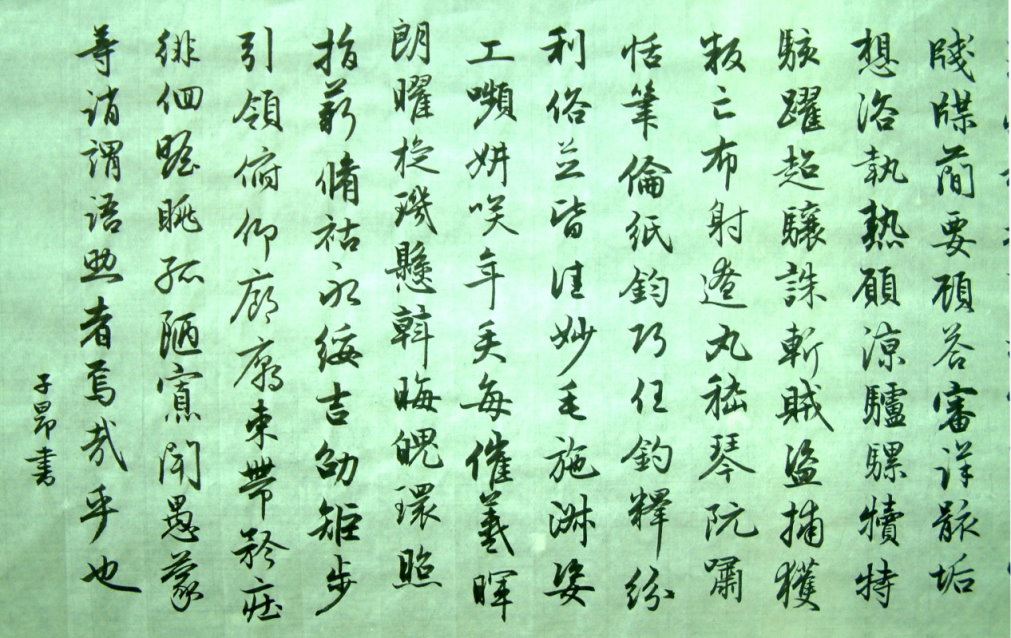 牋牒簡要顧答審詳骸垢
想浴執熱願涼驢騾犢特
駭躍超驤誅斬賊盜捕獲
叛亡布射遼丸嵇琴阮嘯
恬筆倫紙鈞巧任釣釋紛
利俗並皆佳妙毛施淑姿
工嚬妍咲年矢每催羲暉
朗曜旋璣懸斡晦魄環照
指薪脩祜永綏吉劭矩步
引領俯仰廊廟束帶矜莊
徘徊瞻眺孤陋寡聞愚蒙
等誚謂語助者焉哉乎也
子昂書